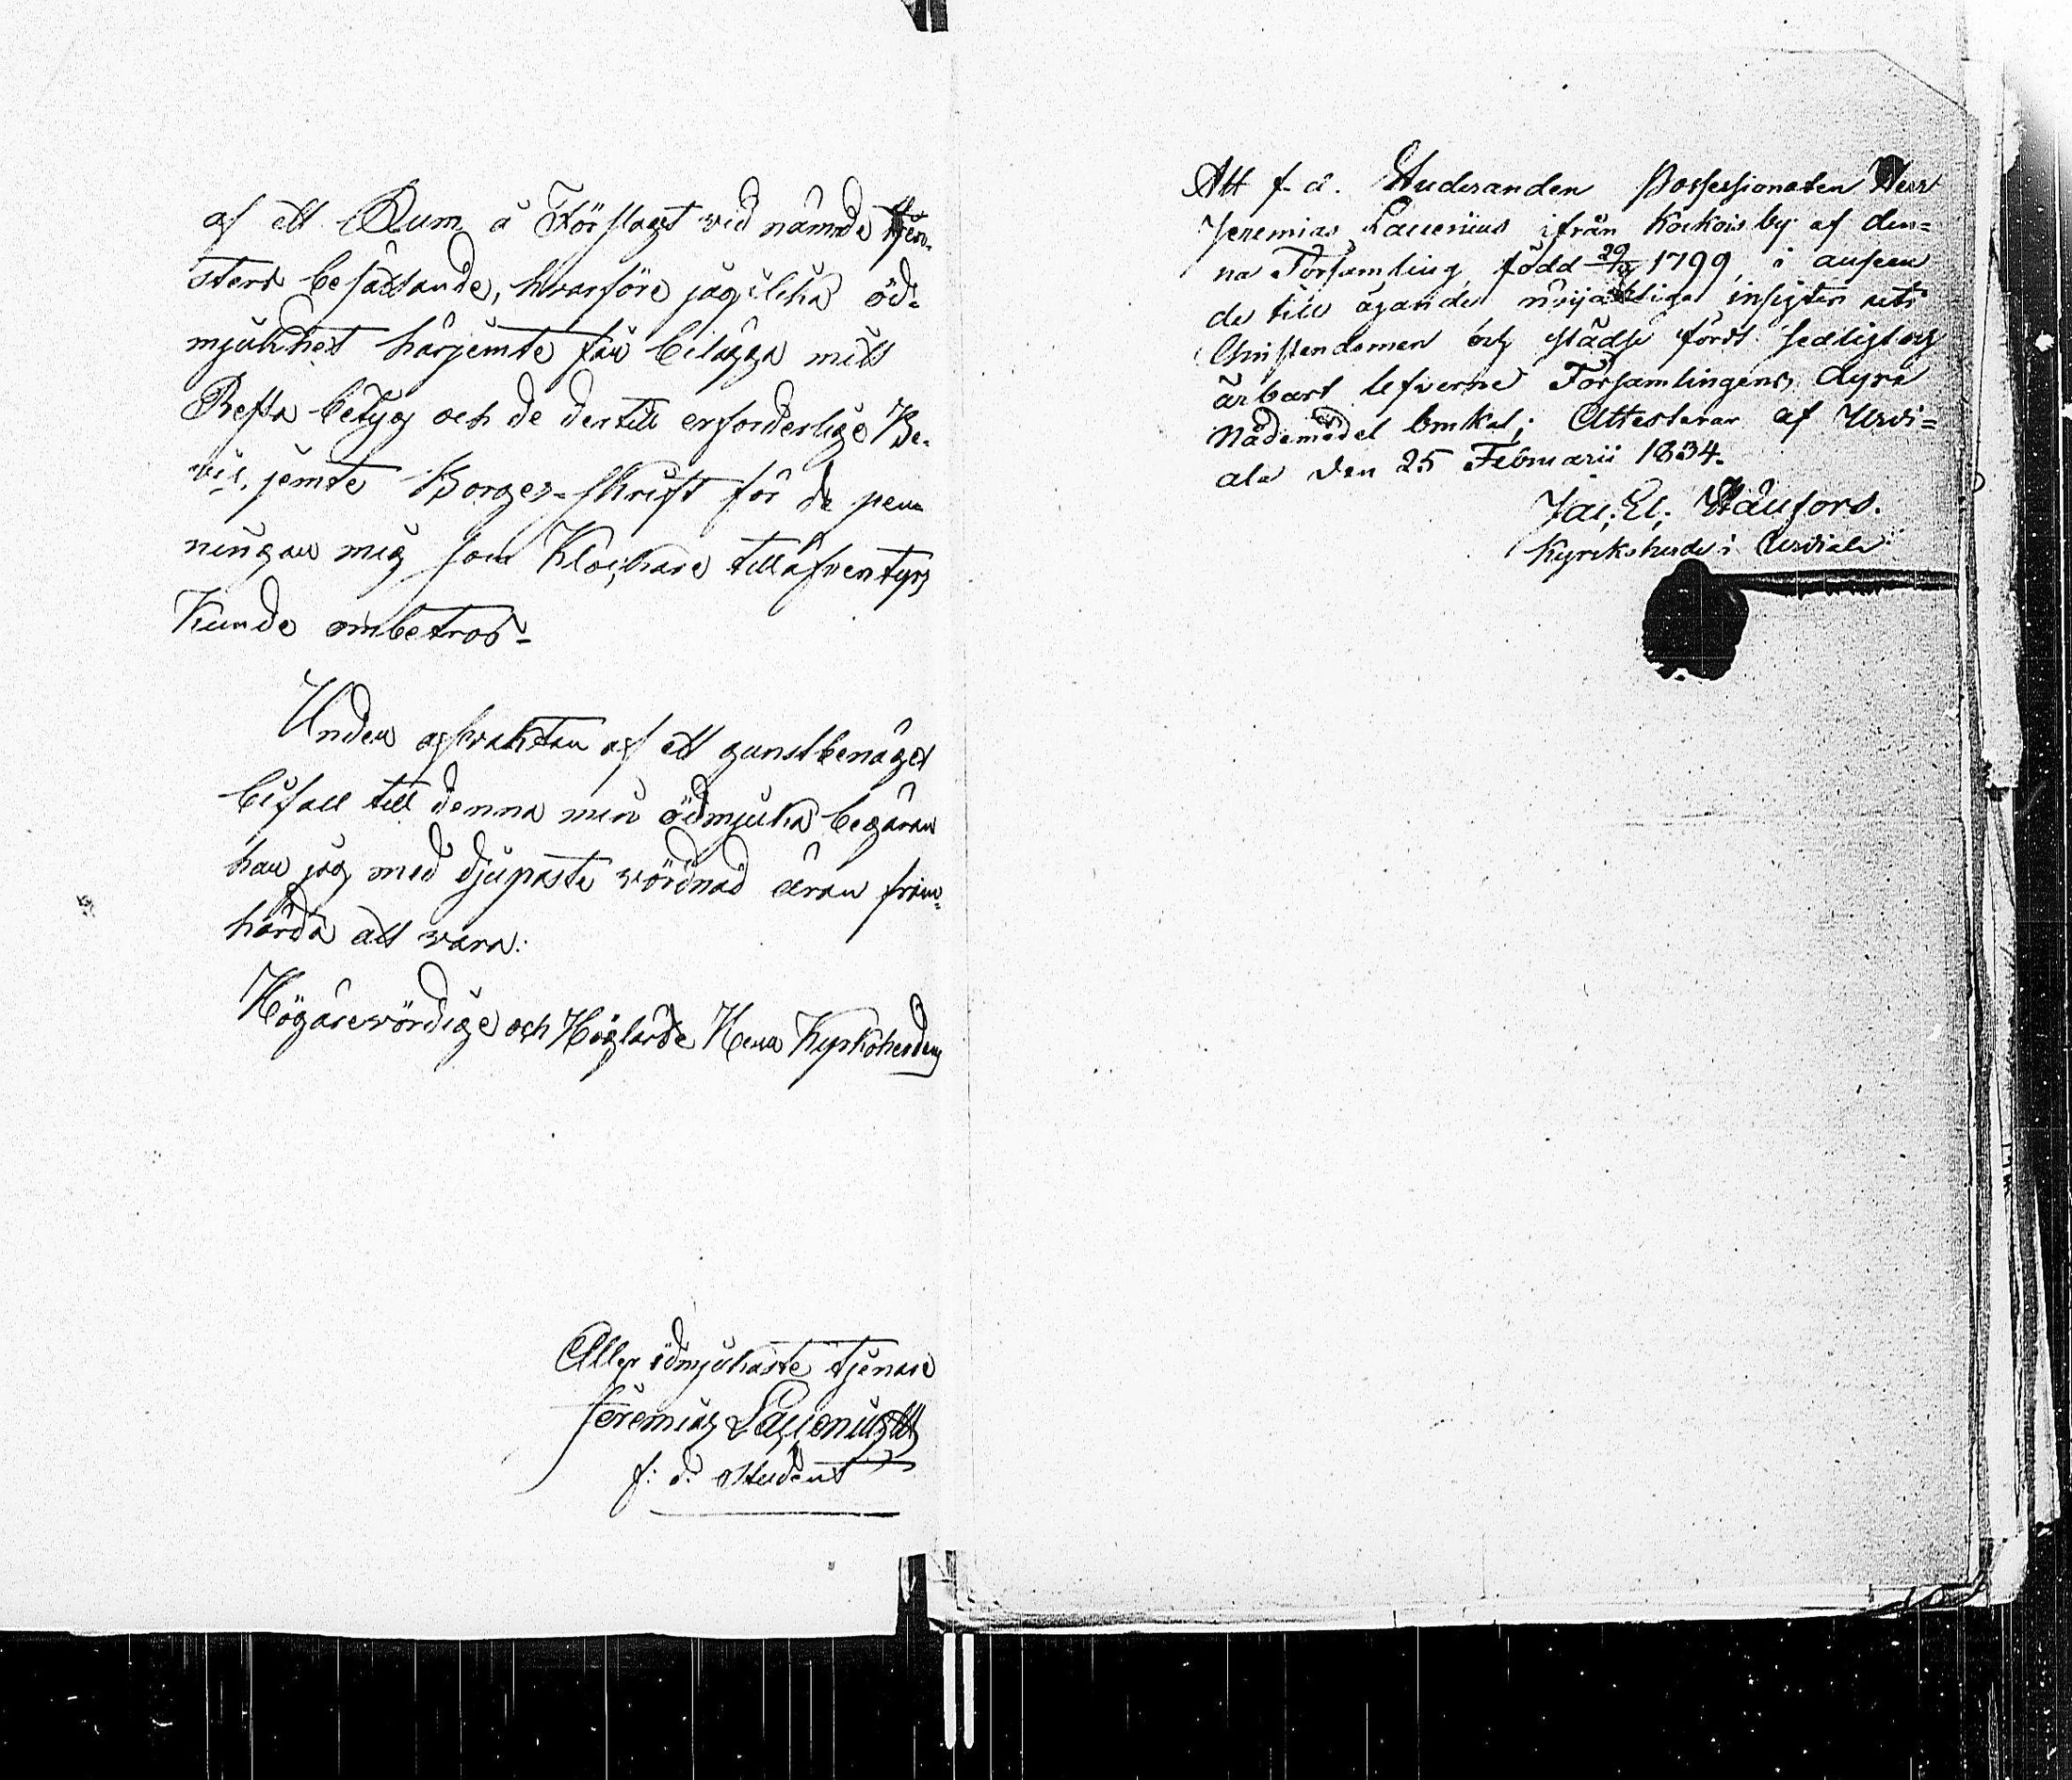 af ett Rum å Förslaget vid nämnde tjen-
stens besättande, hvarföre jag i lika öd-
mjukhet härjemte får bilägga mitt
Präste betyg och de dertill erforderlige Be-
vis, jemte Borges-skrift för de pen-
ningar mig som Klockare till äfventyrs
Kunde ombetros-
Under afvaktan af ett gunstbenäget
bifall till denna min ödmjuka begäran
har jag med djupaste vördnad äran fram-
härda att vara:
Högärevördige och Höglärde Herr Kyrkoherdens
Aller ödmjukaste tjenare
Jeremias
f: d: Student
Att f. d. Studeranden Possessionaten Herr
Jeremias ifrån Kockois by af den=
na Församling född 29 1799, i anseen
de till ägande nöijaktiga insigter uti
Christendomen och städse fördt sedligt och
ärbart lefverne Församlingens dyra
Nådemedel; Attesterar af Urdi=
ala den 25 Februarii 1834.
Jac. El;
Kyrckoherde i Urdiala